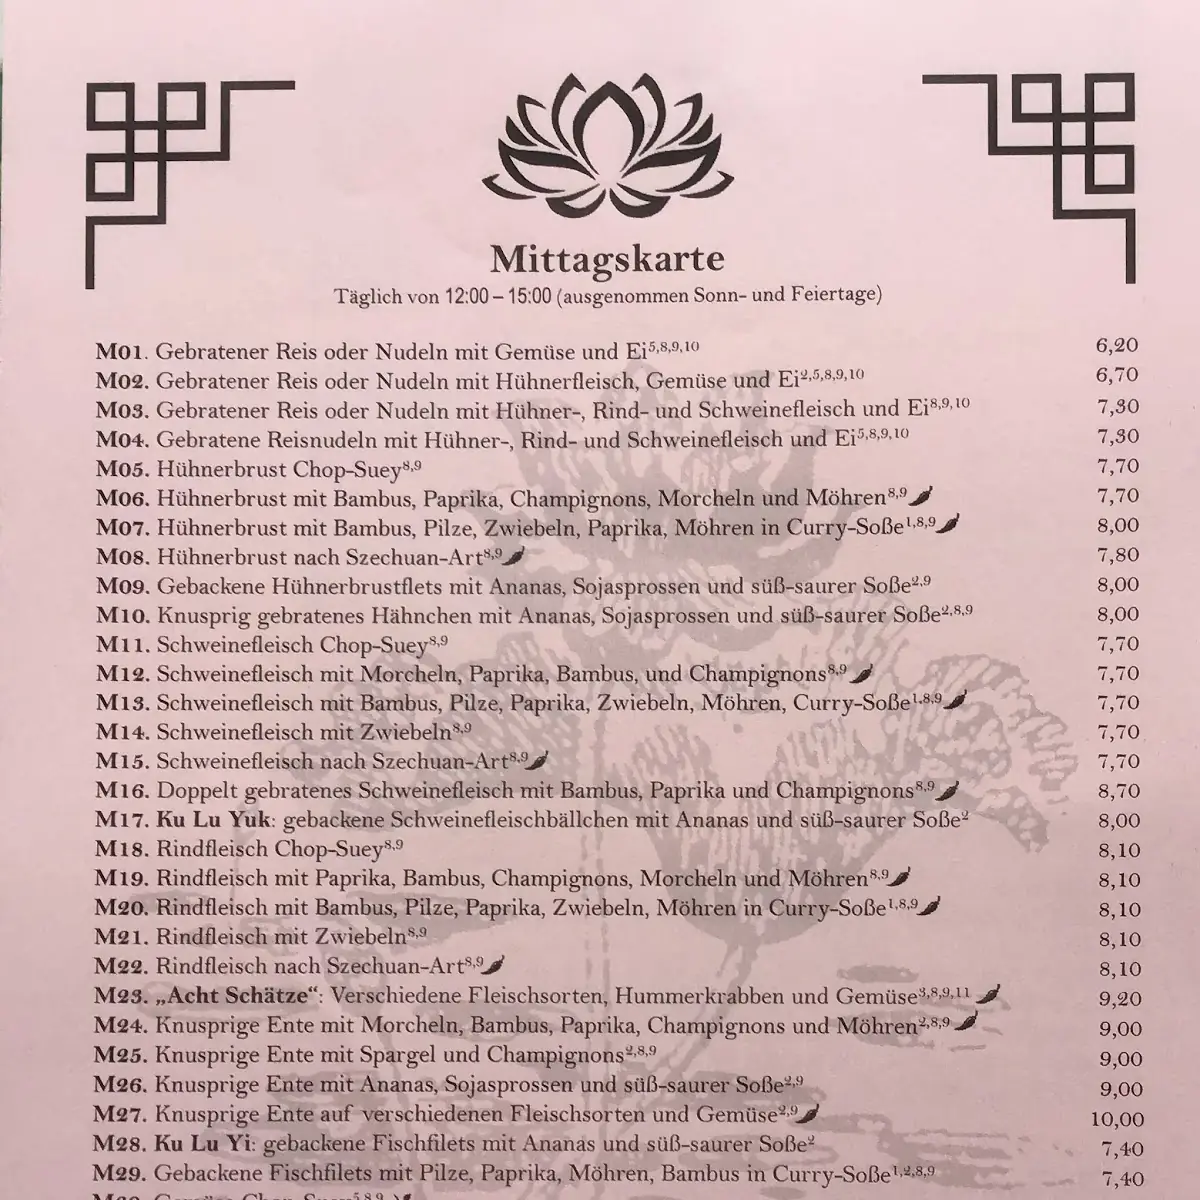 Mittagskarte
Täglich von 12:00 – 15:00 (ausgenommen Sonn- und Feiertage)
M01. Gebratener Reis oder Nudeln mit Gemüse und Ei5,8,9,10 6,20
M02. Gebratener Reis oder Nudeln mit Hühnerfleisch, Gemüse und Ei2,5,8,9,10 6,70
M03. Gebratener Reis oder Nudeln mit Hühner-, Rind- und Schweinefleisch und Ei8,9,10 7,30
M04. Gebratene Reisnudeln mit Hühner-, Rind- und Schweinefleisch und Ei5,8,9,10 7,30
M05. Hühnerbrust Chop-Suey8,9 7,70
M06. Hühnerbrust mit Bambus, Paprika, Champignons, Morcheln und Möhren8,9 7,70
M07. Hühnerbrust mit Bambus, Pilze, Zwiebeln, Paprika, Möhren in Curry-Soße1,8,9 8,00
M08. Hühnerbrust nach Szechuan-Art8,9 7,80
M09. Gebackene Hühnerbrustflets mit Ananas, Sojasprossen und süß-saurer Soße2,9 8,00
M10. Knusprig gebratenes Hähnchen mit Ananas, Sojasprossen und süß-saurer Soße2,8,9 8,00
M11. Schweinefleisch Chop-Suey8,9 7,70
M12. Schweinefleisch mit Morcheln, Paprika, Bambus, und Champignons8,9 7,70
M13. Schweinefleisch mit Bambus, Pilze, Paprika, Zwiebeln, Möhren, Curry-Soße1,8,9 7,70
M14. Schweinefleisch mit Zwiebeln8,9 7,70
M15. Schweinefleisch nach Szechuan-Art8,9 7,70
M16. Doppelt gebratenes Schweinefleisch mit Bambus, Paprika und Champignons8,9 8,70
M17. Ku Lu Yuk: gebackene Schweinefleischbällchen mit Ananas und süß-saurer Soße2 8,00
M18. Rindfleisch Chop-Suey8,9 8,10
M19. Rindfleisch mit Paprika, Bambus, Champignons, Morcheln und Möhren8,9 8,10
M20. Rindfleisch mit Bambus, Pilze, Paprika, Zwiebeln, Möhren in Curry-Soße1,8,9 8,10
M21. Rindfleisch mit Zwiebeln8,9 8,10
M22. Rindfleisch nach Szechuan-Art8,9 8,10
M23. „Acht Schätze“: Verschiedene Fleischsorten, Hummerkrabben und Gemüse3,8,9,11 9,20
M24. Knusprige Ente mit Morcheln, Bambus, Paprika, Champignons und Möhren2,8,9 9,00
M25. Knusprige Ente mit Spargel und Champignons2,8,9 9,00
M26. Knusprige Ente mit Ananas, Sojasprossen und süß-saurer Soße2,9 9,00
M27. Knusprige Ente auf verschiedenen Fleischsorten und Gemüse2,9 10,00
M28. Ku Lu Yi: gebackene Fischfilets mit Ananas und süß-saurer Soße2 7,40
M29. Gebackene Fischfilets mit Pilze, Paprika, Möhren, Bambus in Curry-Soße1,2,8,9 7,40